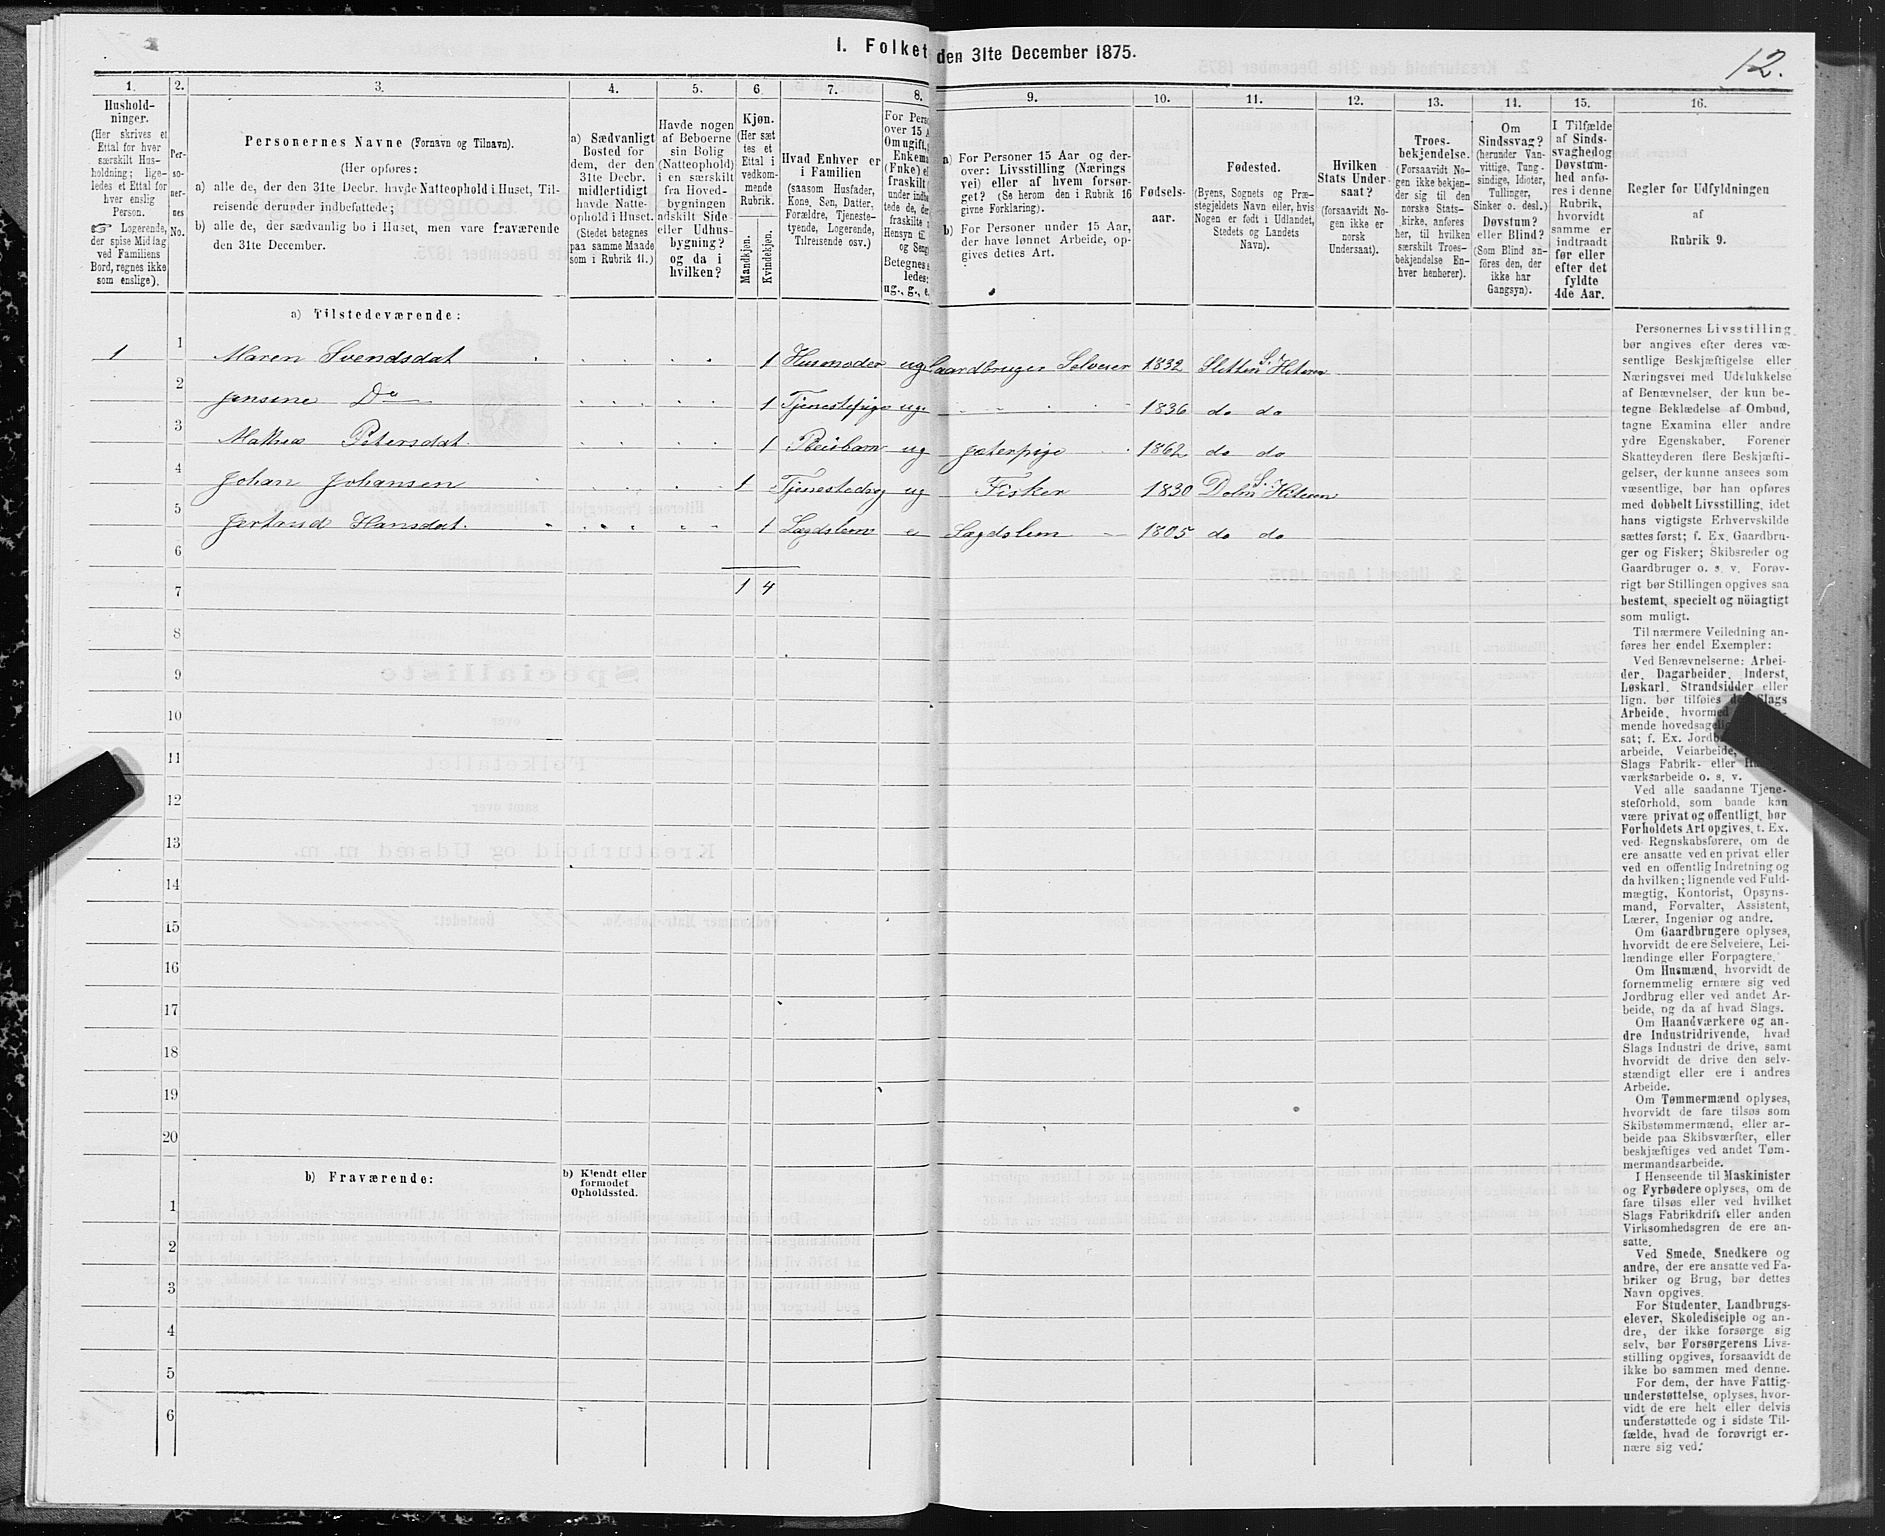 I. Folket den 31te December 1875.
12.
1.
Hushold-
ninger.
(Her skrives et
Ettal for hver
særskilt Hus-
holdning; lige-
ledes et Ettal for
hver enslig
Person.
☞ Logerende,
der spise Middag
ved Familiens
Bord, regnes ikke
som enslige).
2.
Per-
so-
ner-
nes
No.
3.
Personernes Navne (Fornavn og Tilnavn).
(Her opføres:
a) alle de, der den 31te Decbr. havde Natteophold i Huset, Til-
reisende derunder indbefattede;
b) alle de, der sædvanlig bo i Huset, men vare fraværende
den 31te December.
4.
a) Sædvanligt
Bosted for
dem, der den
31te Decbr.
midlertidigt
havde Natte-
ophold i Huset.
(Stedet betegnes
paa samme Maade
som i Rubrik 11.)
5.
Havde nogen
af Beboerne
sin Bolig
(Natteophold)
i en særskilt
fra Hoved-
bygningen
adskilt Side-
eller Udhus-
bygning?
og da i
hvilken?
6
Kjøn.
(Her sæt-
tes et
Ettal i
vedkom-
mende
Rubrik.
Mandkjøn.
Kvindekjøn.
7.
Hvad Enhver er
i Familien
(saasom Husfader,
Kone, Søn, Datter,
Forældre, Tjeneste-
tyende, Logerende,
Tilreisende osv.)
8.
For Pers
over 15 A
Om ugift,
Enkema
(Enke) el
fraskilt
under indb
tede de, de
fraskilte
Hensyn til
og Seng
Betegnes s
ledes:
ug., g., e.
9.
a) For Personer 15 Aar og der-
over: Livsstilling (Nærings-
vei) eller af hvem forsør-
get? (Se herom den i Rubrik 16
givne Forklaring).
b) For Personer under 15 Aar,
der have lønnet Arbeide, op-
gives dettes Art.
10.
Fødsels-
aar.
11.
Fødested.
(Byens, Sognets og Præ-
stegjeldets Navn eller, hvis
Nogen er født i Udlandet,
Stedets og Landets
Navn).
12.
Hvilken
Stats Under-
saat?
(forsaavidt No-
gen ikke er
norsk
Undersaat).
13.
Troes-
bekjendelse.
(Forsaavidt No-
gen ikke bekjen-
der sig til den
norske Stats-
kirke, anføres
her, til hvilken
særskilt Troes-
bekjendelse En-
hver henhører).
14.
Om
Sindssvag?
(herunder Van-
vittige, Tung-
sindige, Idioter,
Tullinger,
Sinker o. desl.)
Døvstum?
eller Blind?
(Som Blind an-
føres den, der
ikke har
Gangsyn).
15.
I Tilfælde
af Sinds-
svaghed og
Døvstum-
hed anfø-
res i denne
Rubrik,
hvorvidt
samme er
indtraadt
før eller
efter det
fyldte
4de Aar.
16.
Regler for Udfyldningen
af
Rubrik 9.
a) Tilstedeværende:
1 1 Maren Svendsdat 1 Husmoder ug Gaardbruger Selveier 1832 Sletten S. Hiteren
2 Jensine Do 1 Tjenestepige ug 1836 do do
3 Mathea Petersdat. 1 Pleiebarn ug gjeterpige 1862 do do
4 Johan Johansen 1 Tjenestedrg ug Fisker 1830 Dolm S. Hiteren
5 Jertrud Hansdat. 1 Lægdslem e Lægdslem 1805 do do
6
7 1 4
8
9
10
11
12
13
14
15
16
17
18
19
20
b) Fraværende:
b) Kjendt eller
formodet
Opholdssted.
1
2
3
4
5
6
Personernes Livsstilling
bør angives efter deres væ-
sentlige Beskjæftigelse eller
Næringsvei med Udelukkelse
af Benævnelser, der kun be-
tegne Beklædelse af Ombud,
tagne Examina eller andre
ydre Egenskaber. Forener
Skatteyderen flere Beskjæfti-
gelser, der kunne ansees som
væsentlige, bør han opføres
med dobbelt Livsstilling, idet
hans vigtigste Erhvervskilde
sættes først; f. Ex. Gaardbru-
ger og Fisker; Skibsreder og
Gaardbruger o. s. v. Forøv-
rigt bør Stillingen opgives saa
bestemt, specielt og nöiagtigt
som muligt.
Til nærmere Veiledning an-
føres her endel Exempler:
Ved Benævnelserne: Arbei-
der, Dagarbeider, Inderst,
Løskarl, Strandsidder eller
lign. bør tilføies Slags
Arbeide, hvormed
mende hovedsage
sat; f. Ex. Jord
arbeide, Veiarbeide,
Slags Fabrik- eller
værksarbeide o. s. v.
Ved alle saadanne Tjene-
steforhold, som baade kan
være privat og offentligt, bør
Forholdets Art opgives, f. Ex.
ved Regnskabsførere, om de
ere ansatte ved en privat eller
ved en offentlig Indretning og
da hvilken; lignende ved Fuld-
mægtig, Kontorist, Opsyns-
mand, Forvalter, Assistent,
Lærer, Ingeniør og andre.
Om Gaardbrugere oplyses,
hvorvidt de ere Selveiere, Lei-
lændinge eller Forpagtere.
Om Husmænd, hvorvidt de
fornemmelig ernære sig ved
Jordbrug eller ved andet Ar-
beide, og da af hvad Slags.
Om Haandværkere og an-
dre Industridrivende, hvad
Slags Industri de drive, samt
hvorvidt de drive den selv-
stændigt eller ere i andres
Arbeide.
Om Tømmermænd oplyses,
hvorvidt de fare tilsøs som
Skibstømmermænd, eller ar-
beide paa Skibsværfter, eller
beskjæftiges ved andet Tøm-
mermandsarbeide.
I Henseende til Maskinister
og Fyrbødere oplyses, om de
fare tilsøs eller ved hvilket
Slags Fabrikdrift eller anden
Virksomhedsgren de ere an-
satte.
Ved Smede, Snedkere og
andre, der ere ansatte ved Fa-
briker og Brug, bør dettes
Navn opgives.
For Studenter, Landbrugs-
elever, Skoledisciple og an-
dre, der ikke forsørge sig
selv, bør Forsørgerens Livs-
stilling opgives, forsaavidt de
ikke bo sammen med denne.
For dem, der have Fattig-
understøttelse, oplyses, hvor-
vidt de ere helt eller delvis
understøttede og i sidste Til-
fælde, hvad de forøvrigt er-
nære sig ved.